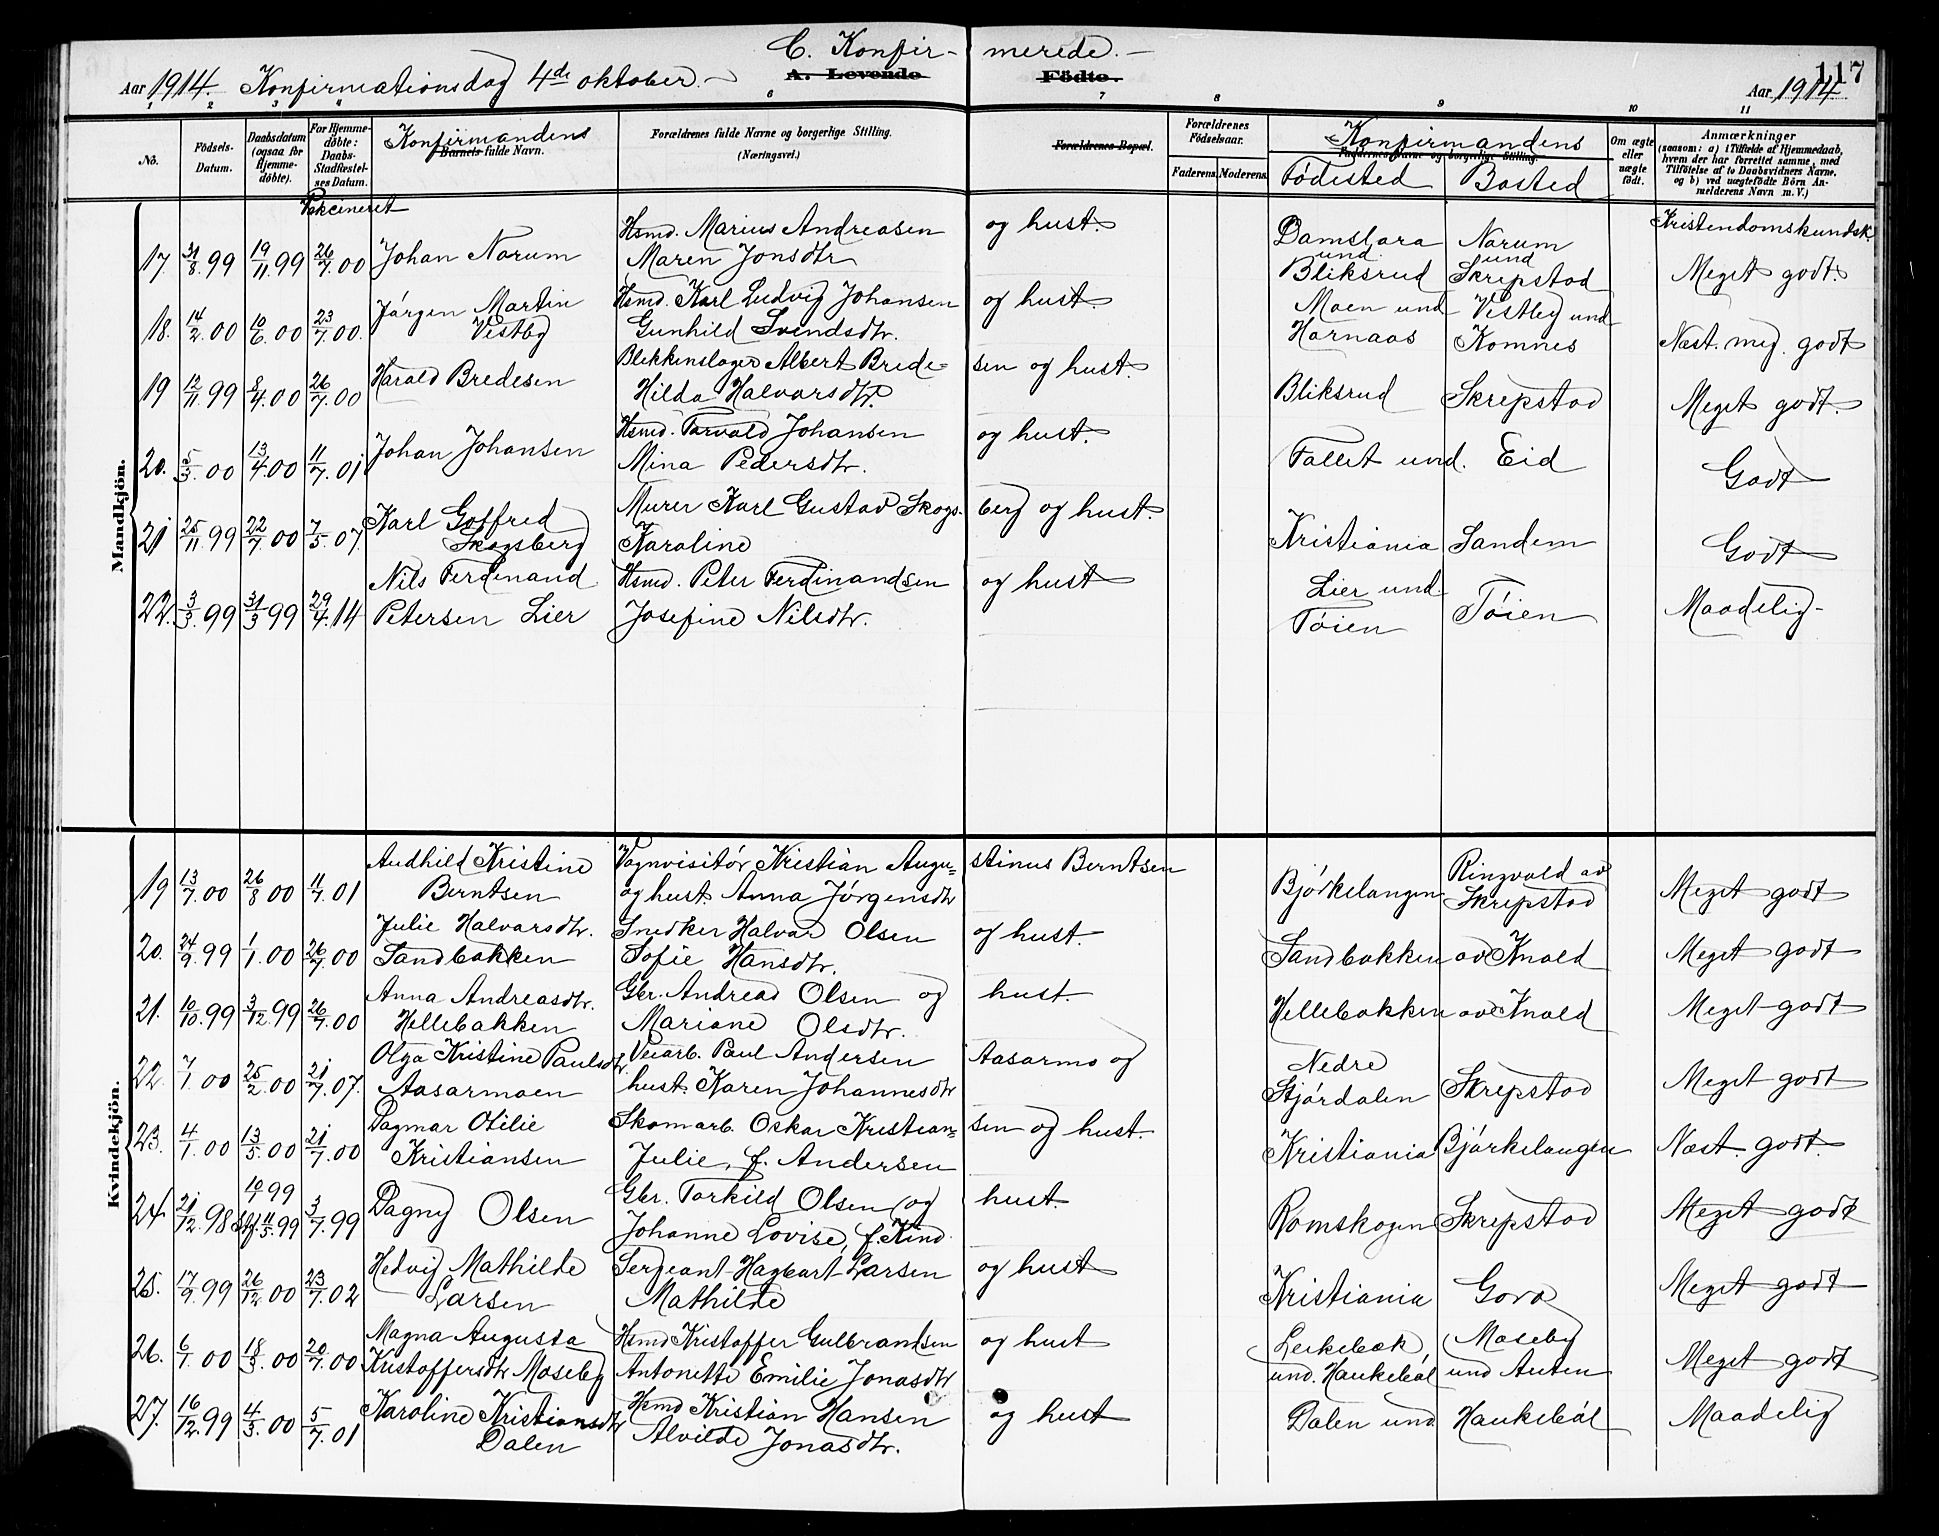 C. Konfir- merede.
117
Aar 1914. Konfirmationsdag 4de oktober. A. Levende Födte. Aar 1914
1 2 3 4 6 7 8 9 10 11
No.
Födsels-Datum.
Daabsdatum (ogsaa for Hjemme-döbte).
For Hjemme-döbte: Daabs-Stadfæstel-ses Datum.
Konfirmandens
Barnets fulde Navn.
Forældrenes fulde Navne og borgerlige Stilling.
(Næringsvei.)
Forældrenes Bopæl.
Forældrenes Födselsaar.
Faderens. Moderens.
Konfirmandens
Födested Bosted
Om ægte eller uægte födt.
Anmærkninger
(saasom: a) i Tilfælde af Hjemmedaab,
hvem der har forrettet samme, med
Tilföielse af to Daabsvidners Navne,
og b) ved uægtefödte Börn An-
melderens Navn m. V.)
Vakcineret
Kristendomskundsk.
Mandkjön.
Hsmd. Marius Andreasen og hust.
17 31/8.99 19/11.99 26/7.00 Johan Narum Maren Jonsdtr. Damslora und Bliksrud Narum und Skrepstad Meget godt.
Jörgen Martin Hsmd. Karl Ludvig Johansen og hust. Moen und Vestby und
18. 14/2.00 10/6.00 23/7.00. Vestby Gunhild Svendsdtr. Harnaas Komnes Næst. meg. godt
Blikkenslager Albert Brede- sen og hust.
19 12/11.99 8/4.00 26/7.00 Harald Bredesen Hilda Halvorsdtr. Bliksrud Skrepstad Meget godt.
Hsmd. Torvald Johansen og hust.
20. 5/3.00 13/4.00 11/7.01 Johan Johansen Mina Pedersdtr. Fallet und. Eid Godt
Karl Gotfred Murer Karl Gustav Skogs- berg og hust.
21 25/11.99 22/7.00 7/5.07 Skogsberg Karoline Kristiania Sandem Godt
Nils Ferdinand Hsmd. Peter Ferdinandsen og hust Lier und.
22. 3/3.99 31/3 99 29/4.14 Petersen Lier Josefine Nilsdtr. Töien Töien Maadelig-
Kvindekjön.
Audhild Kristine Vognvisitör Kristian Augu- stinus Berntsen Ringvold av
19 13/7.00 26/8 00 11/7.01 Berntsen og hust. Anna Jörgensdtr Björkelangen Skrepstad Meget godt
Julie Halvorsdtr. Snedker Halvor Olsen og hust.
20. 24/9.99 1/1.00 26/7.00 Sandbakken Sofie Hansdtr. Sandbakken av Knold Meget godt
Anna Andreasdtr. Gbr. Andreas Olsen og hust.
21. 10/10.99 3/12.99 26/7.00 Hellebakken Mariane Olsdtr. Hellebakken av Knold Meget godt
Olga Kristine Paulsdtr. Veiarb. Paul Andersen Aasarmo og Nedre
22. 7/1.00 25/2.00 21/7.07. Aasarmoen hust. Karen Johannesdtr Stjördalen Skrepstad Meget godt
Dagmar Otilie Skomarb. Oskar Kristian- sen og hust.
23. 4/1.00 13/5.00 21/7.00 Kristiansen Julie, f. Andersen Kristiania Björkelangen Næst. godt.
10/1 99 Gbr. Torkild Olsen og hust.
24. 21/12.98 11/5.99 3/7.99 Dagny Olsen Johanne Lovise, f. Kind Römskogen Skrepstad Meget godt
Hedvig Mathilde Sergeant Hagbart Larsen og hust
25. 17/9.99 26/12 00 23/7.02 Larsen Mathilde Kristiania Gora Meget godt
Magna Augusta Hsmd Kristoffer Gulbrandsen og hust Leikebæk, Moseby
26. 6/1.00 18/3.00 20/7.00 Kristoffersdtr Moseby Antonette Emilie Jonasdtr und. Haukeböl und Auten Meget godt
Karoline Kristiansdtr Hsmd Kristian Hansen og hust
27. 16/12.99 4/3.00 5/7.01 Dalen Alvilde Jonasdtr. Dalen und Haukeböl Maadelig